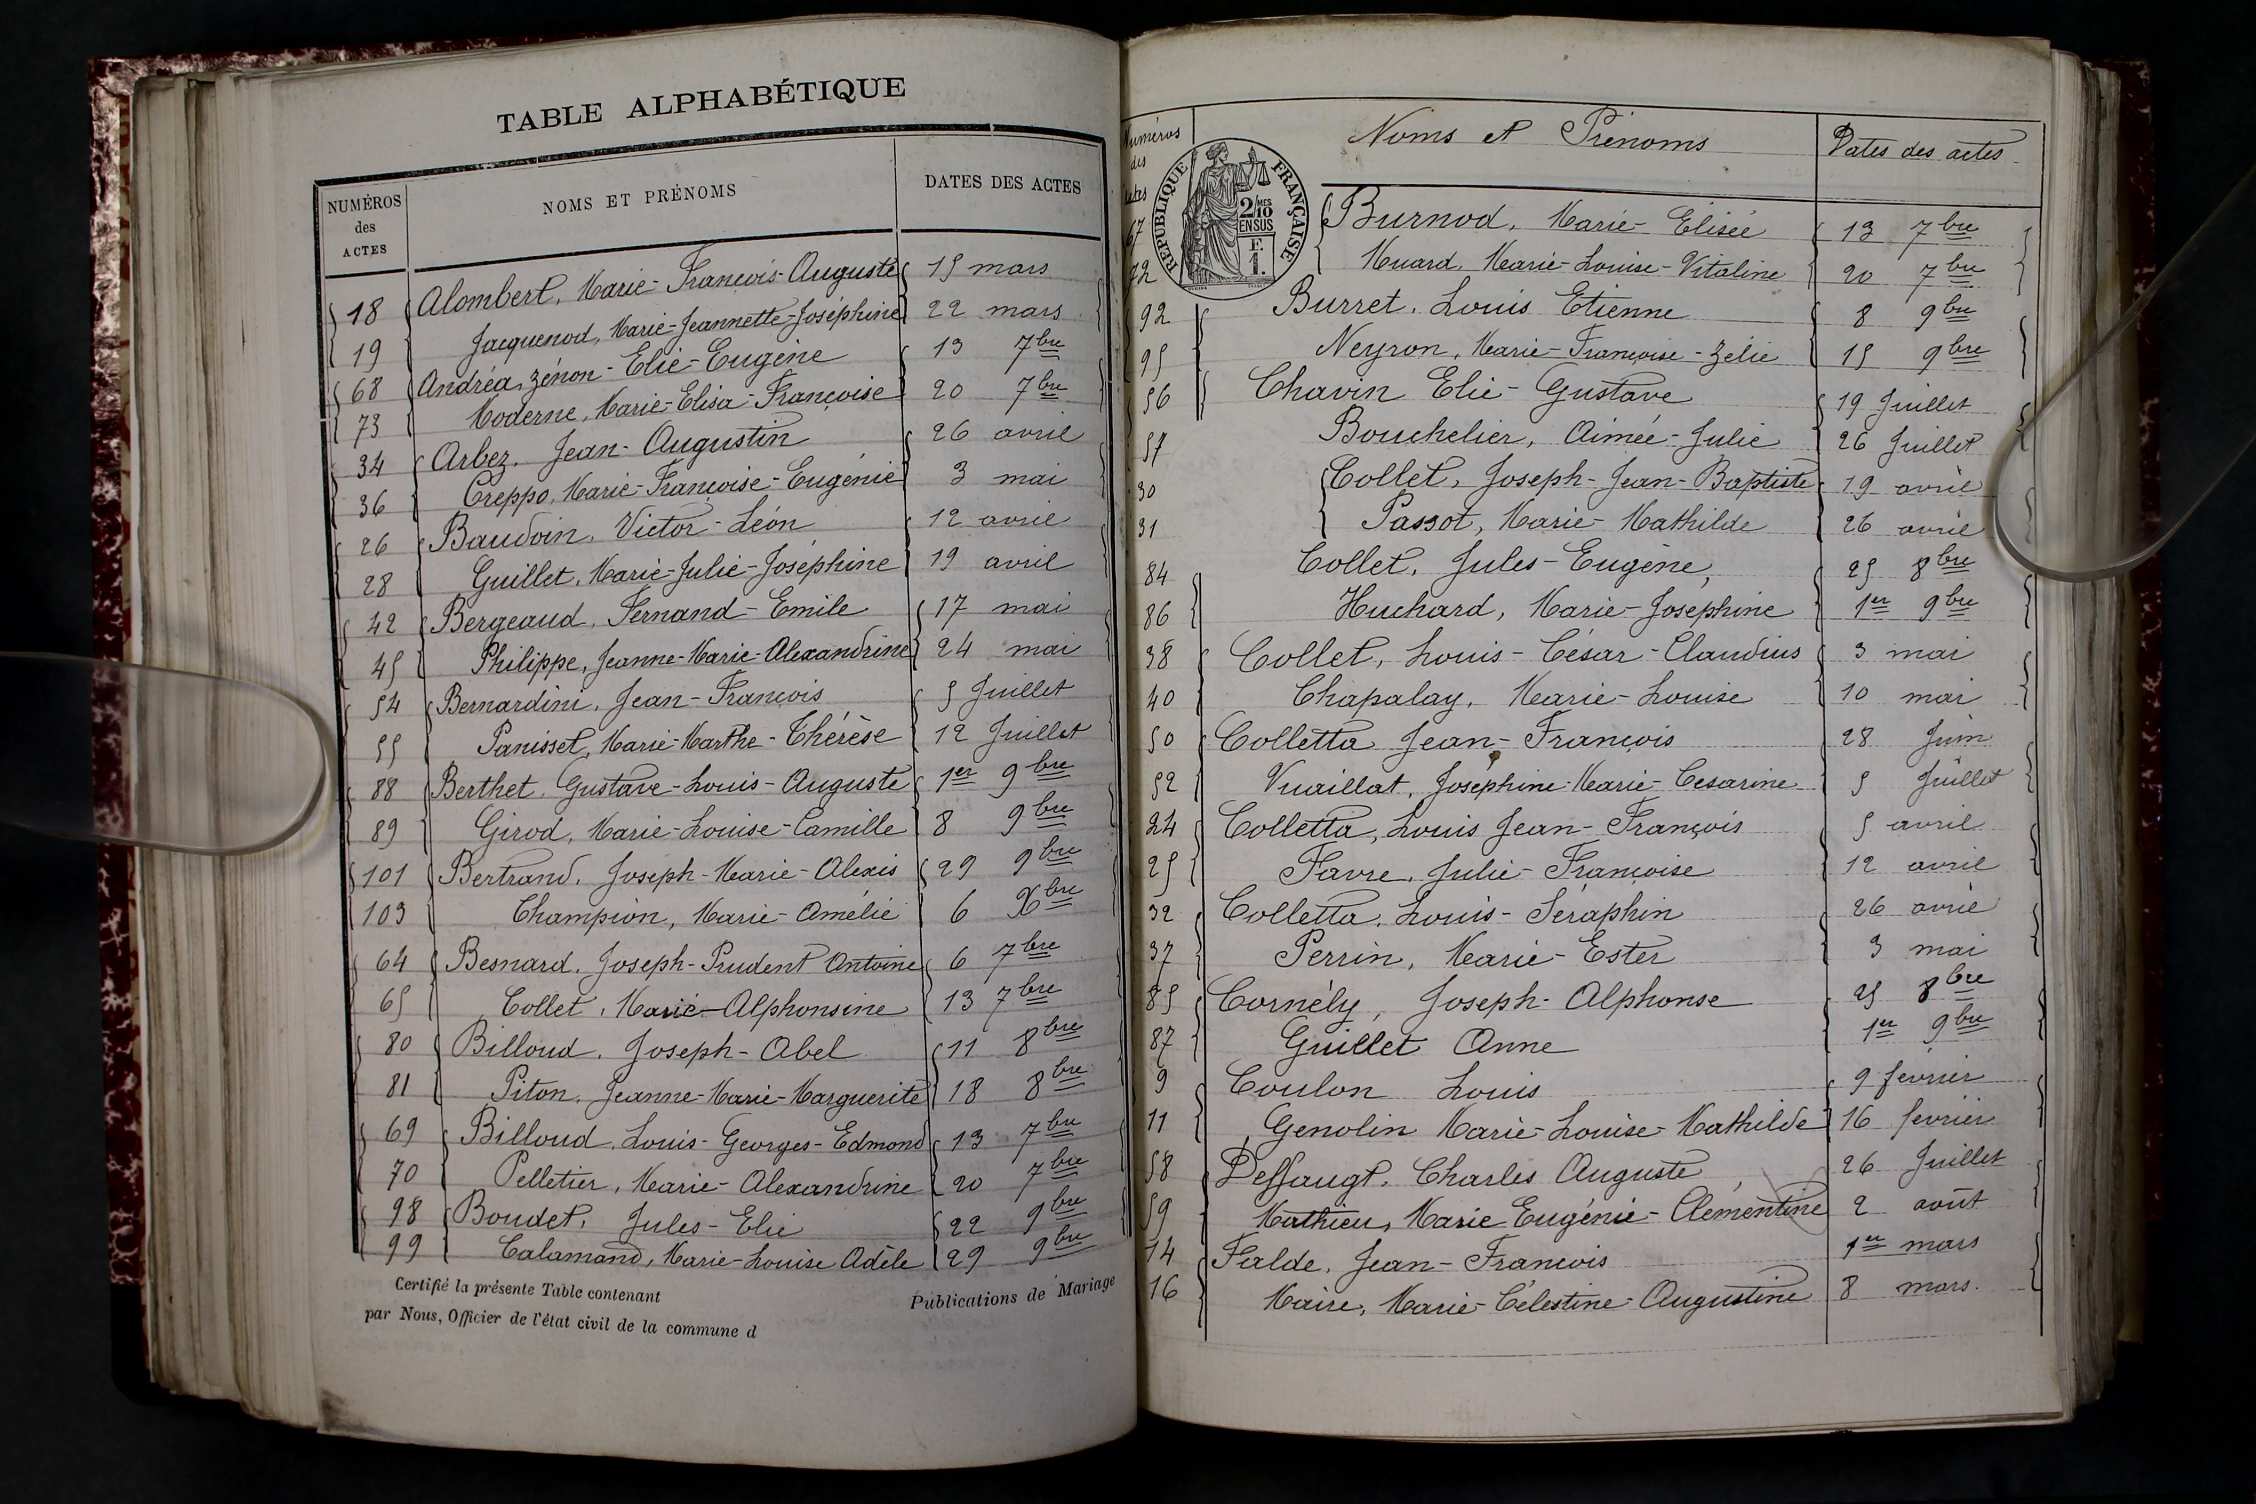 TABLE ALPHABÉTIQUE
NUMÉROS des ACTES NOMS ET PRÉNOMS DATES DES ACTES
18 Alombert, Marie-François-Auguste 15 mars
19 Jacquenod, Marie-Jeannette-Joséphine 22 mars
68 Andréa, Zénon-Elie-Eugène 13 7bre
73 Moderne, Marie-Elisa-Françoise 20 7bre
34 Arbez, Jean-Augustin 26 avril
36 Creppo, Marie-Françoise-Eugénie 3 mai
26 Baudoin, Victor-Léon 12 avril
28 Guillet, Marie-Julie-Joséphine 19 avril
42 Bergeaud, Fernand-Emile 17 mai
45 Philippe, Jeanne-Marie-Alexandrine 24 mai
54 Bernardini, Jean-François 5 Juillet
55 Panisset, Marie-Marthe-Thérèse 12 Juillet
88 Berthet, Gustave-Louis-Auguste 1er 9bre
89 Girod, Marie-Louise-Camille 8 9bre
101 Bertrand, Joseph-Marie-Alexis 29 9bre
103 Champion, Marie-Amélie 6 Xbre
64 Besnard, Joseph-Prudent Antoine 6 7bre
65 Collet, Marie-Alphonsine 13 7bre
80 Billoud, Joseph-Abel 11 8bre
81 Piton, Jeanne-Marie-Marguerite 18 8bre
69 Billoud, Louis-Georges-Edmond 13 7bre
70 Pelletier, Marie-Alexandrine 20 7bre
98 Boudet, Jules-Elie 22 9bre
99 Calamand, Marie-Louise Adèle 29 9bre
Certifié la présente Table contenant Publications de Mariage
par Nous, Officier de l'état civil de la commune d
Numéros des actes Noms et Prénoms Dates des actes
RÉPUBLIQUE FRANÇAISE
2/10 MES
EN SUS
F.
1.
67 Burnod, Marie-Elisée 13 7bre
72 Huard, Marie-Louise-Vitaline 20 7bre
92 Burret, Louis Etienne 8 9bre
95 Neyron, Marie-Françoise-Zélie 15 9bre
56 Chavin Elie-Gustave 19 Juillet
57 Bouchelier, Aimée-Julie 26 Juillet
30 Collet, Joseph-Jean-Baptiste 19 avril
31 Passot, Marie-Mathilde 26 avril
84 Collet, Jules-Eugène, 25 8bre
86 Huchard, Marie-Joséphine 1er 9bre
38 Collet, Louis-César-Claudius 3 mai
40 Chapalay, Marie-Louise 10 mai
50 Colletta Jean-François 28 Juin
52 Vuaillat, Joséphine-Marie-Cesarine 5 Juillet
24 Colletta, Louis Jean-François 5 avril
25 Favre, Julie-Françoise 12 avril
32 Colletta, Louis-Séraphin 26 avril
37 Perrin, Marie-Ester 3 mai
85 Cornély, Joseph-Alphonse 25 8bre
87 Guillet Anne 1er 9bre
9 Coulon Louis 9 février
11 Genolin Marie-Louise-Mathilde 16 février
58 Deffaugt, Charles Auguste, 26 Juillet
59 Mathieu, Marie Eugénie-Clémentine 2 août
14 Falde, Jean-François 1er mars
16 Maire, Marie-Célestine-Augustine 8 mars.